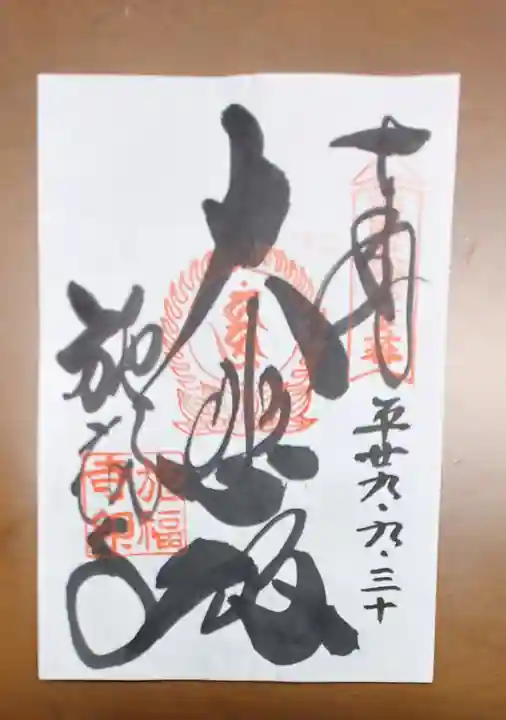 奉拝
平廿九・九・三十
大悲殿
施福寺
施福
寺印